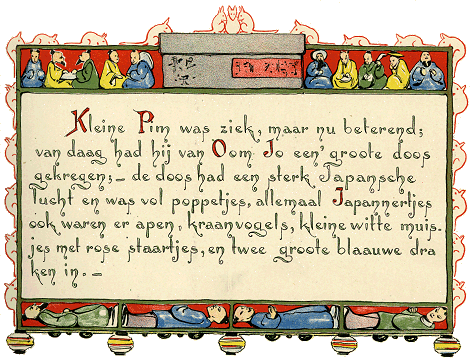 Kleine Pim was ziek, maar nu beterend;
van daag had hij van Oom Jo een groote doos
gekregen; – de doos had een sterk Japansche
lucht en was vol poppetjes, allemaal Japannertjes
ook waren er apen, kraanvogels, kleine witte muis-
jes met rose staartjes, en twee groote blaauwe dra
ken in. –